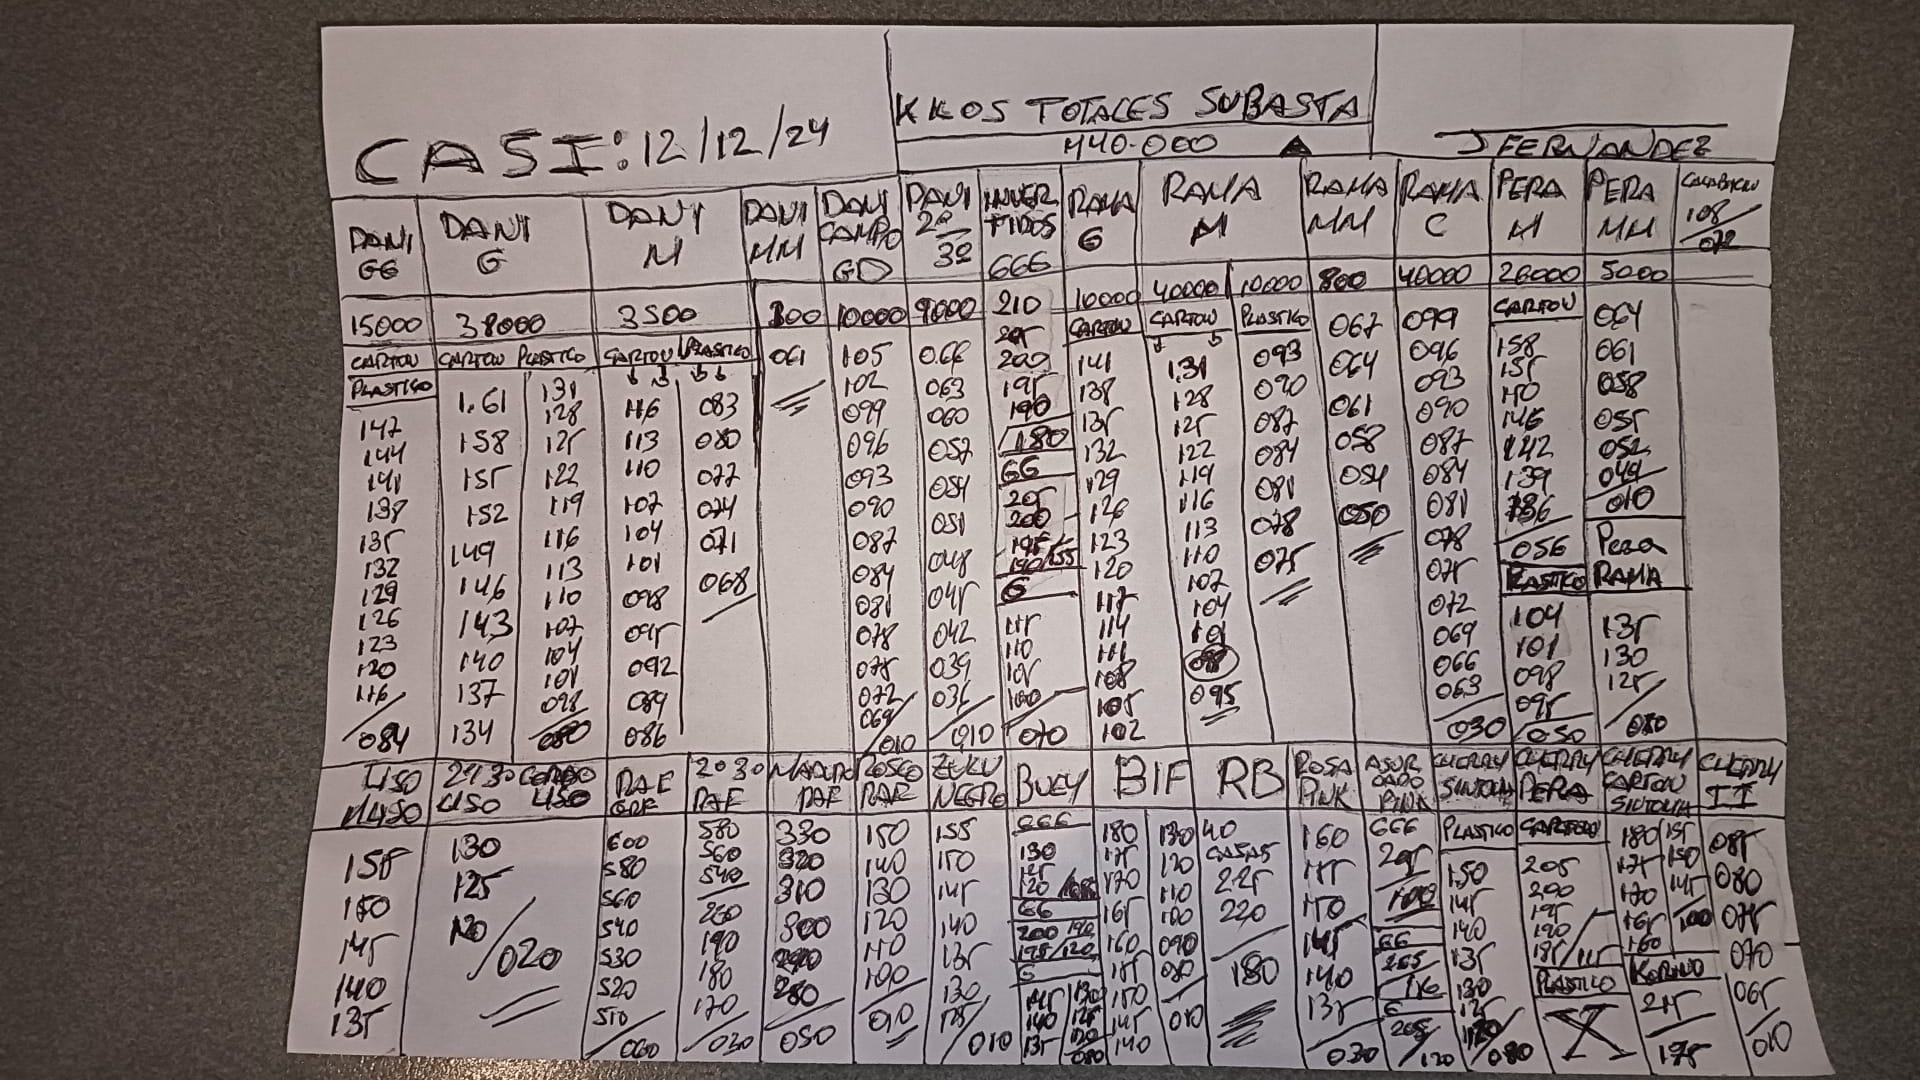 CASI: 12/12/24
KKOS TOTALES SUBASTA
440.000
J FERNANDEZ
DANI GG
DANI G
DANI M
DANI MM
DANI CAMPO GD
DANI 2ª 3ª
INVER TIDOS 666
RAMA G
RAMA M
RAMA MM
RAMA C
PERA M
PERA MM
108/072
15000
38000
3500
10000
9000
210
10000
40000
10000
800
40000
26000
5000
CARTON
PLASTICO
147
144
141
138
135
132
129
126
123
120
116
084
CARTON
1.61
158
155
152
149
146
143
140
137
134
PLASTICO
131
128
125
122
119
116
113
110
107
104
101
098
080
CARTON
116
113
110
107
104
101
098
095
092
089
086
PLASTICO
083
080
077
074
071
068
061
105
102
099
096
093
090
087
084
081
078
075
072
069
010
066
063
060
057
054
051
048
045
042
039
036
010
205
200
195
190
180
66
205
200
195
190/155
G
115
110
105
100
070
CARTON
141
138
135
132
129
126
123
120
117
114
111
108
105
102
CARTON
1.31
128
125
122
119
116
113
110
107
104
101
098
095
PLASTICO
093
090
087
084
081
078
075
067
064
061
058
054
050
099
096
093
090
087
084
081
078
075
072
069
066
063
030
CARTON
158
155
150
146
142
139
136
056
PLASTICO
104
101
098
095
050
064
061
058
055
052
049
010
PERA RAMA
135
130
125
080
LISO
155
150
145
140
135
2ª 3ª LISO
GORDO LISO
130
125
120
020
RAF GRF
600
580
560
540
530
520
510
060
2ª 3ª RAF
580
560
540
200
190
180
170
030
MADURO RAF
330
320
310
300
290
280
050
ROSCO RAF
150
140
130
120
110
100
010
ZUKU NEGRO
155
150
145
140
135
130
125
010
BUEY
666
130
125
120
66
200
195/120
G
145
140
135
130
125
120
080
BIF
180
175
170
165
160
155
150
145
140
130
120
110
100
090
080
010
RB
40 CASAS
225
220
180
ROSA PINK
160
155
150
145
140
135
030
ASURCADO PINK
666
205
100
66
205
116
G
205
120
CHERRY SINTONIA
PLASTICO
150
145
140
135
130
125
120
080
CHERRY PERA
CARTON
205
200
195
190
185/115
PLASTICO
X
CHERRY CARTON SINTONIA
180
175
170
165
160
155
150
145
100
215
175
CHERRY II
085
080
075
070
065
010